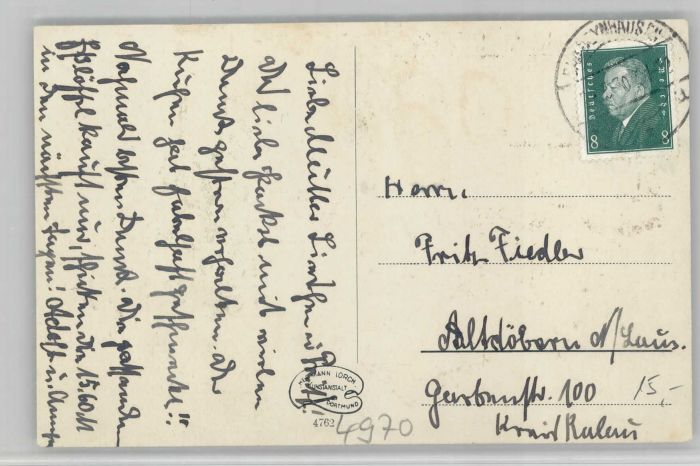 Liebe Mutter Lieschen u. Fritz!
Die liebe Karte mit vielem
Dank gestern erhalten. Der
Kuchen hat fabelhaft geschmeckt!!
Nochmals besten Dank. Die
kauft nur, schicken die 15.60 M
in den nächsten Tagen! Adolf u.
YNHAUSEN
Deutsches Reich
8 8
Herrn
Fritz Fiedler
Altdöbern N/Laus.
Gartenstr. 100
Kreis Kalau
15,-
HERMANN LORCH
KUNSTANSTALT
DORTMUND
4762
4970